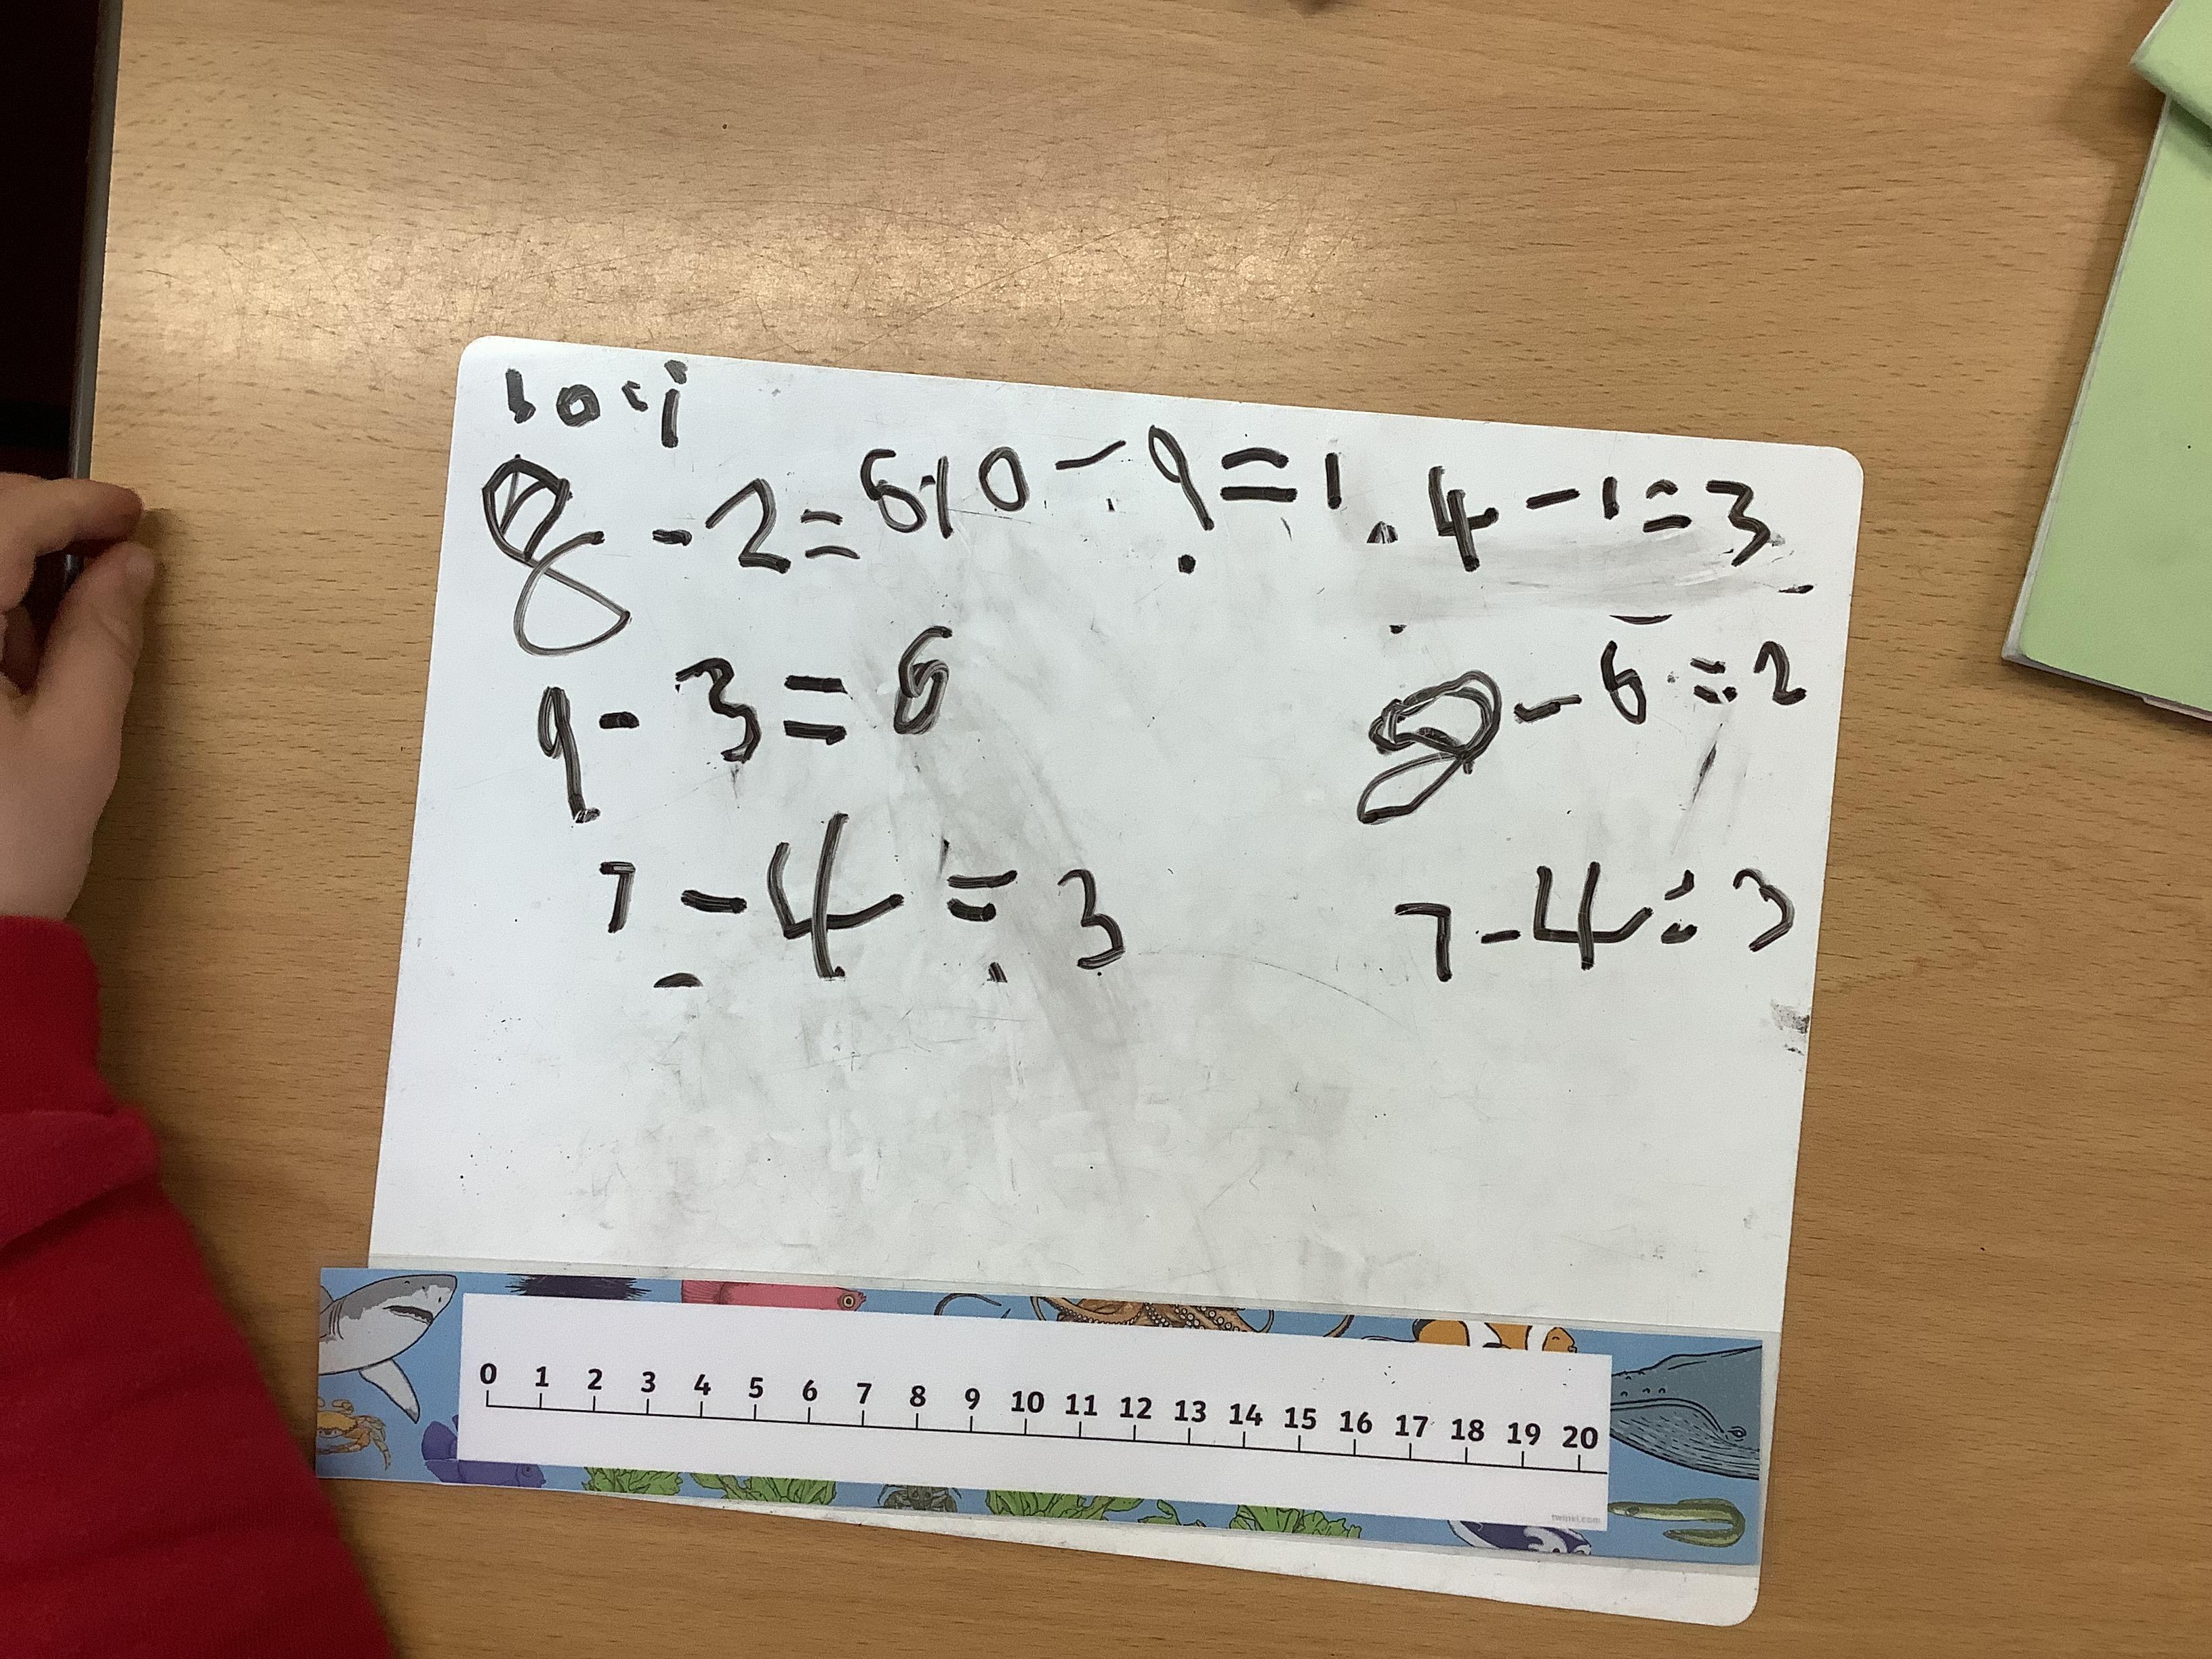 8 - 2 = 6 10 - 9 = 1 4 - 1 = 3
9 - 3 = 6 8 - 6 = 2
7 - 4 = 3 7 - 4 = 3
0 1 2 3 4 5 6 7 8 9 10 11 12 13 14 15 16 17 18 19 20
twinkl.com